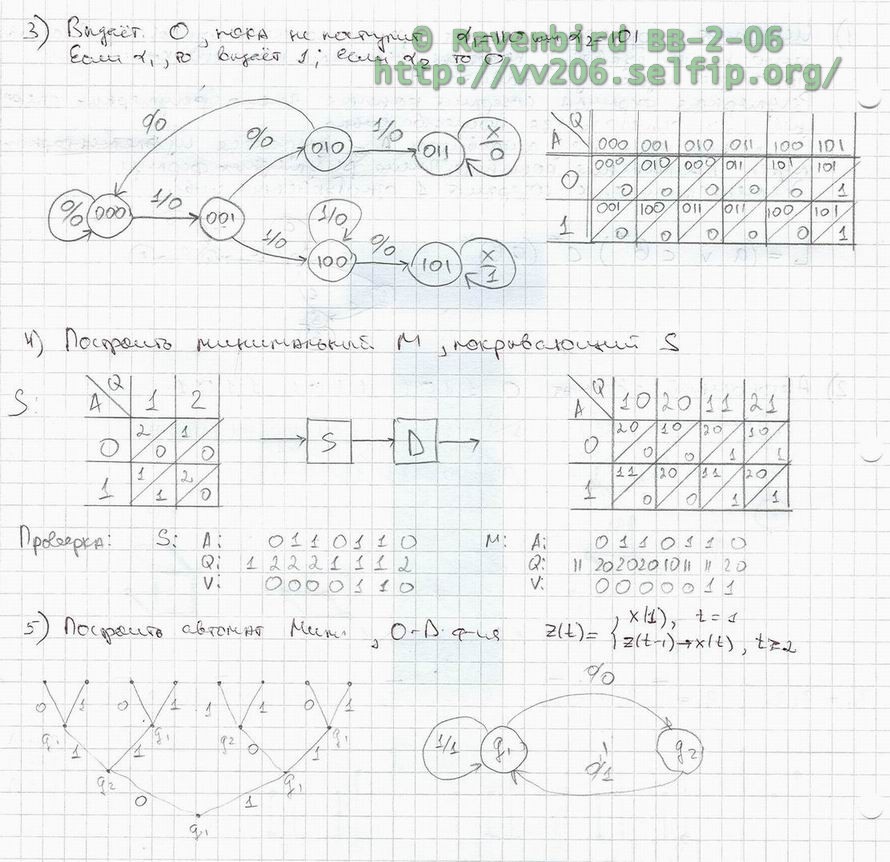 3) Выдаёт 0, пока не поступит α₁=110 или α₂=101
Если α₁, то выдаёт 1; если α₂ то 0
© Ravenbird BB-2-06
http://vv206.selfip.org/
0/0 0/0 010 1/0 011 x/0
0/0 000 1/0 001 1/0 100 1/0 0/0 101 x/1
A Q 000 001 010 011 100 101
0 000 0 010 0 000 0 011 0 101 0 101 1
1 001 0 100 0 011 0 011 0 100 0 101 1
4) Построить минимальный M, покрывающий S
S: A Q 1 2
0 2 0 1 0
1 1 1 2 0
S D
A Q 10 20 11 21
0 20 0 10 0 20 1 10 1
1 11 0 20 0 11 1 20 1
Проверка: S: A: 0 1 1 0 1 1 0
Q: 1 2 2 2 1 1 1 2
V: 0 0 0 0 1 1 0
M: A: 0 1 1 0 1 1 0
Q: 11 20 20 20 10 11 11 20
V: 0 0 0 0 0 1 1
5) Построить автомат Мили, О-Д ф-ия z(t)= { x(1), t=1
z(t-1)→x(t), t≥2
0 1 0 1 1 0 1
q₁ 1 1 q₁ q₂ 0 1 q₁
q₂ 0 1 q₁
q₁
0/0
1/1 q₁ q₂
0/1